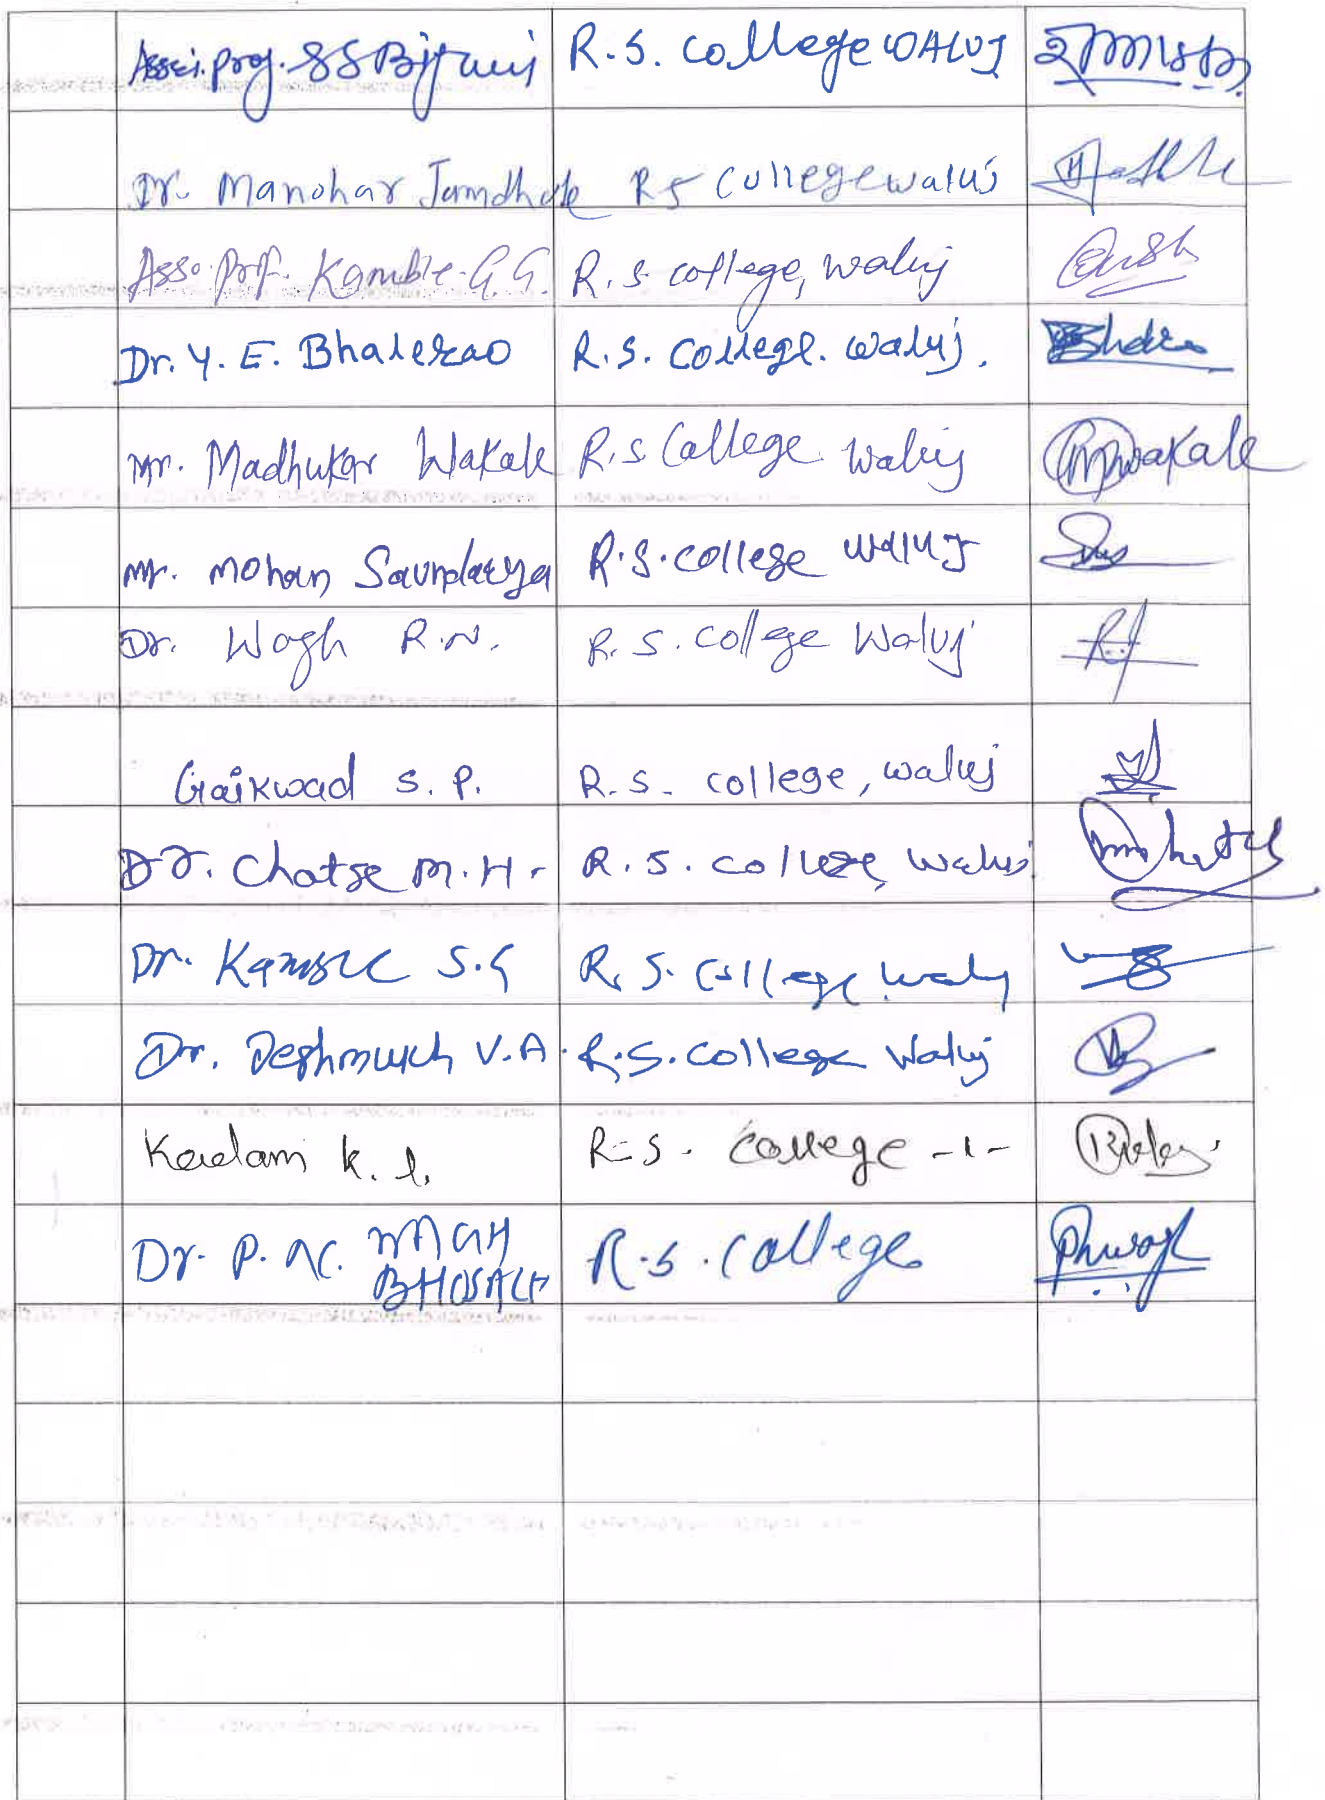 Assi. prof. S S Bijjuij R.S. College WALUJ
Dr. Manohar Jamdhde RS College waluj
Asso. Prof. Kamble G.G. R.S college, waluj
Dr. Y. E. Bhalerao R.S. College. waluj.
Mr. Madhukar Wakale R.S College Waluj Mwakale
Mr. Mohan Saundarya R.S. college Waluj
Dr. Wagh R.N. R.S. college Waluj
Gaikwad S. P. R.S. college, waluj
Dr. Chatse M.H. R.S. college, waluj
Dr. Kamble S.G R.S. College waluj
Dr. Deshmukh V.A. R.S. college Waluj
Kadam K. L. R.S. College -1-
Dr. P. N. WAGH R.S. College Pnwagh
BHOSALE